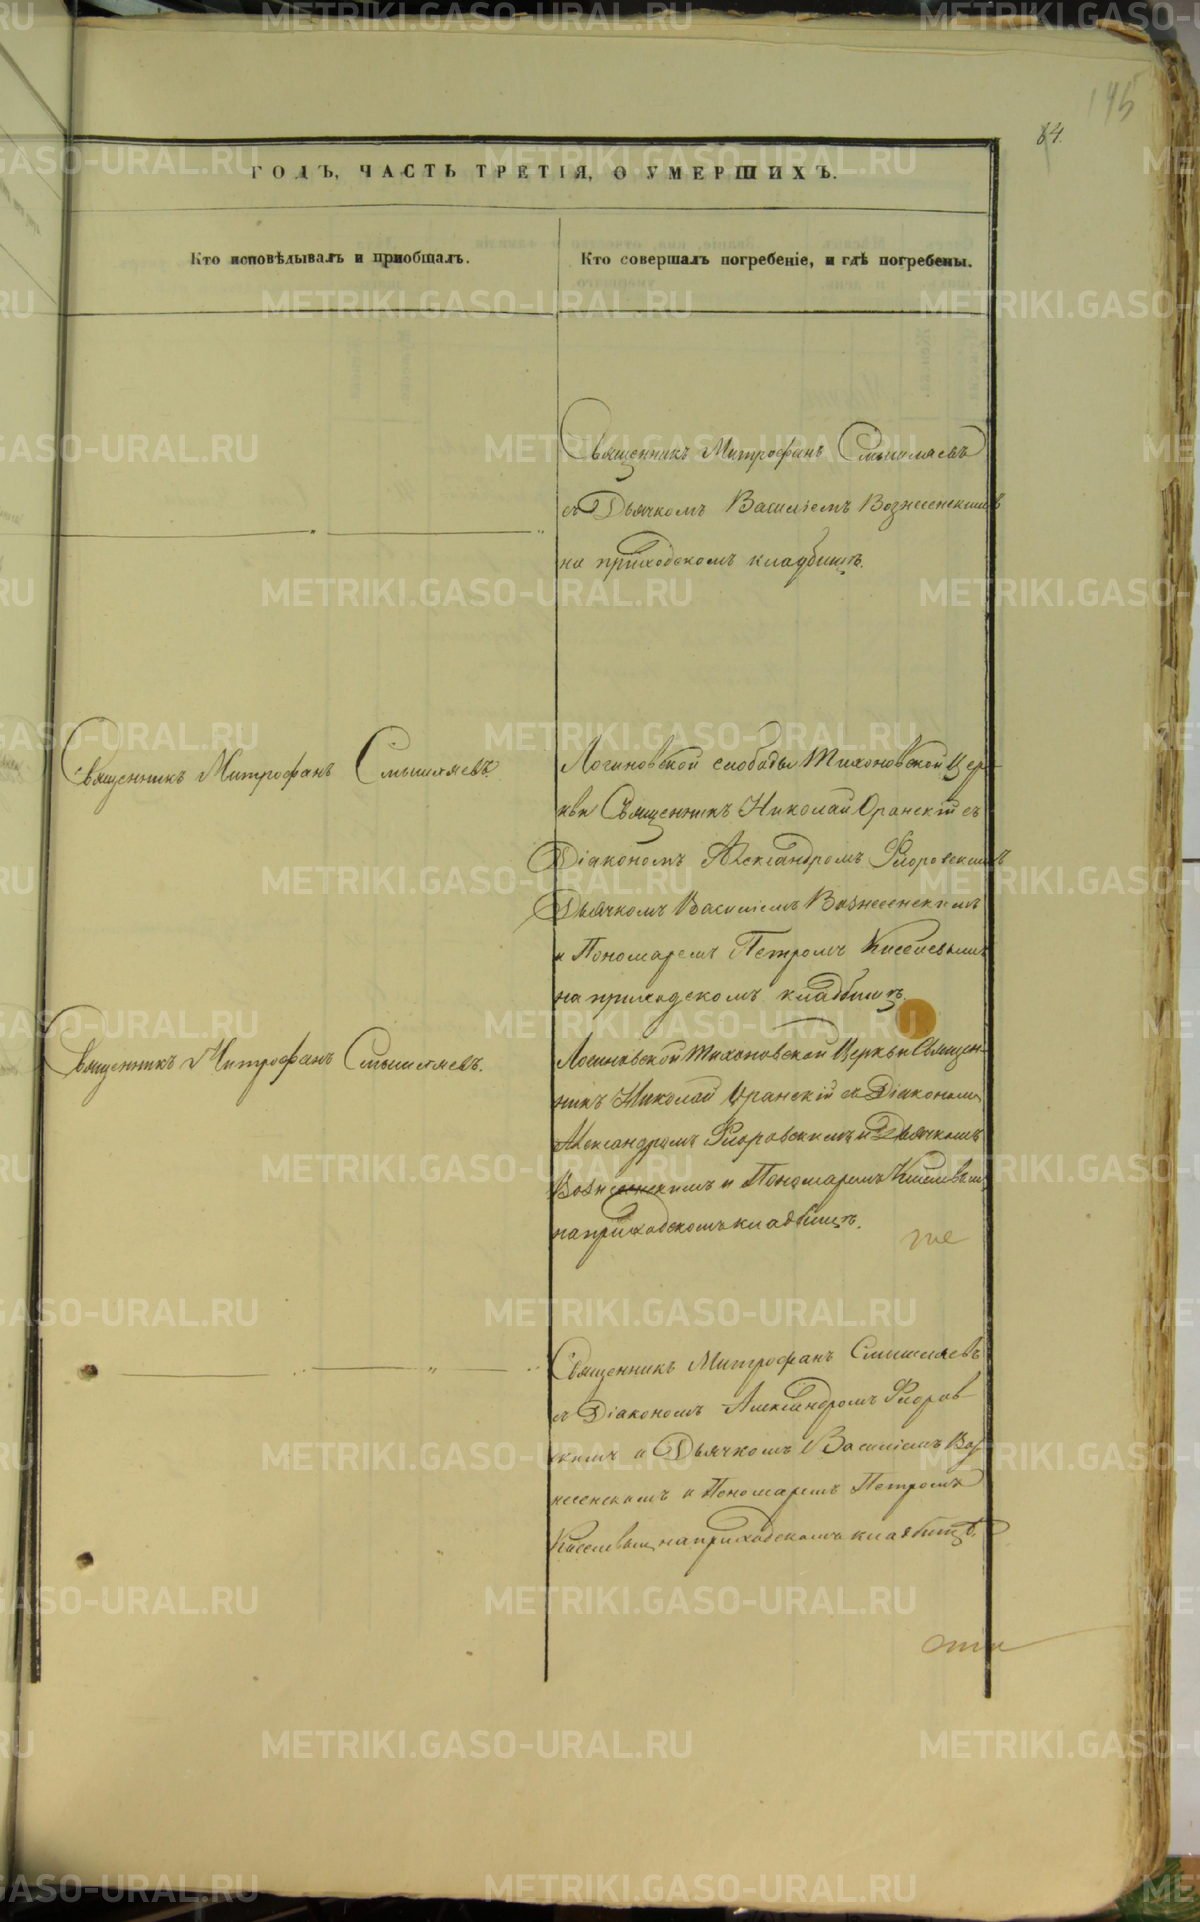 195
84.
ГОДЪ, ЧАСТЬ ТРЕТІЯ, О УМЕРШИХЪ.
Кто исповѣдывалъ и пріобщалъ.
Кто совершалъ погребеніе, и гдѣ погребены.
Священникъ Митрофанъ Смышляевъ
съ Дьячкомъ Василіемъ Вознесенскимъ
на приходскомъ кладбищѣ.
Священникъ Митрофанъ Смышляевъ.
Логиновской слободы Тихоновской Цер-
кви Священникъ Николай Оранскій съ
Діакономъ Александромъ Флоровскимъ
Дьячкомъ Василіемъ Вознесенскимъ
и Пономаремъ Петромъ Киселевымъ
на приходскомъ кладбищѣ.
Священникъ Митрофанъ Смышляевъ.
Логиновской Тихоновской Церкви Священ-
никъ Николай Оранскій съ Діакономъ
Александромъ Флоровскимъ и Дьячкомъ
Вознесенскимъ и Пономаремъ Киселевым
на приходскомъ кладбищѣ.
Священникъ Митрофанъ Смышляевъ
съ Діакономъ Александромъ Флоров-
скимъ и Дьячкомъ Василіемъ Воз-
несенскимъ и Пономаремъ Петромъ
Киселевым на приходскомъ кладбищѣ.
METRIKI.GASO-URAL.RU